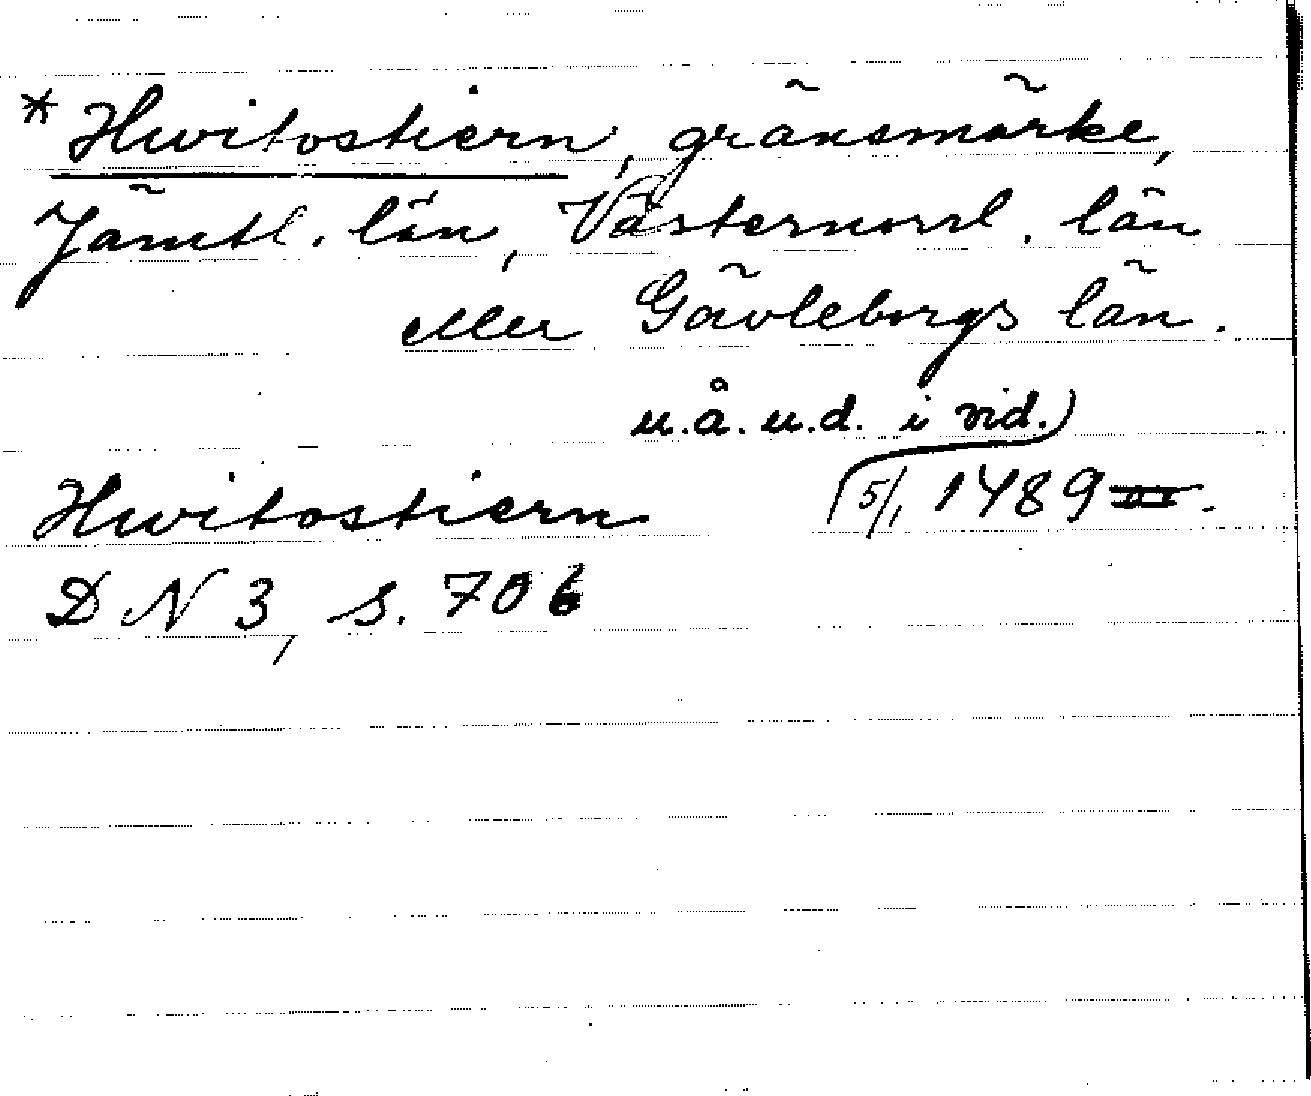 * Hwitostiern, gränsmärke,
Jämtl. län, Västernorrl. län
eller Gävleborgs län.
u.å. u.d. i vid.)
Hwitostiern (5/1 1489.
DN 3, s. 706